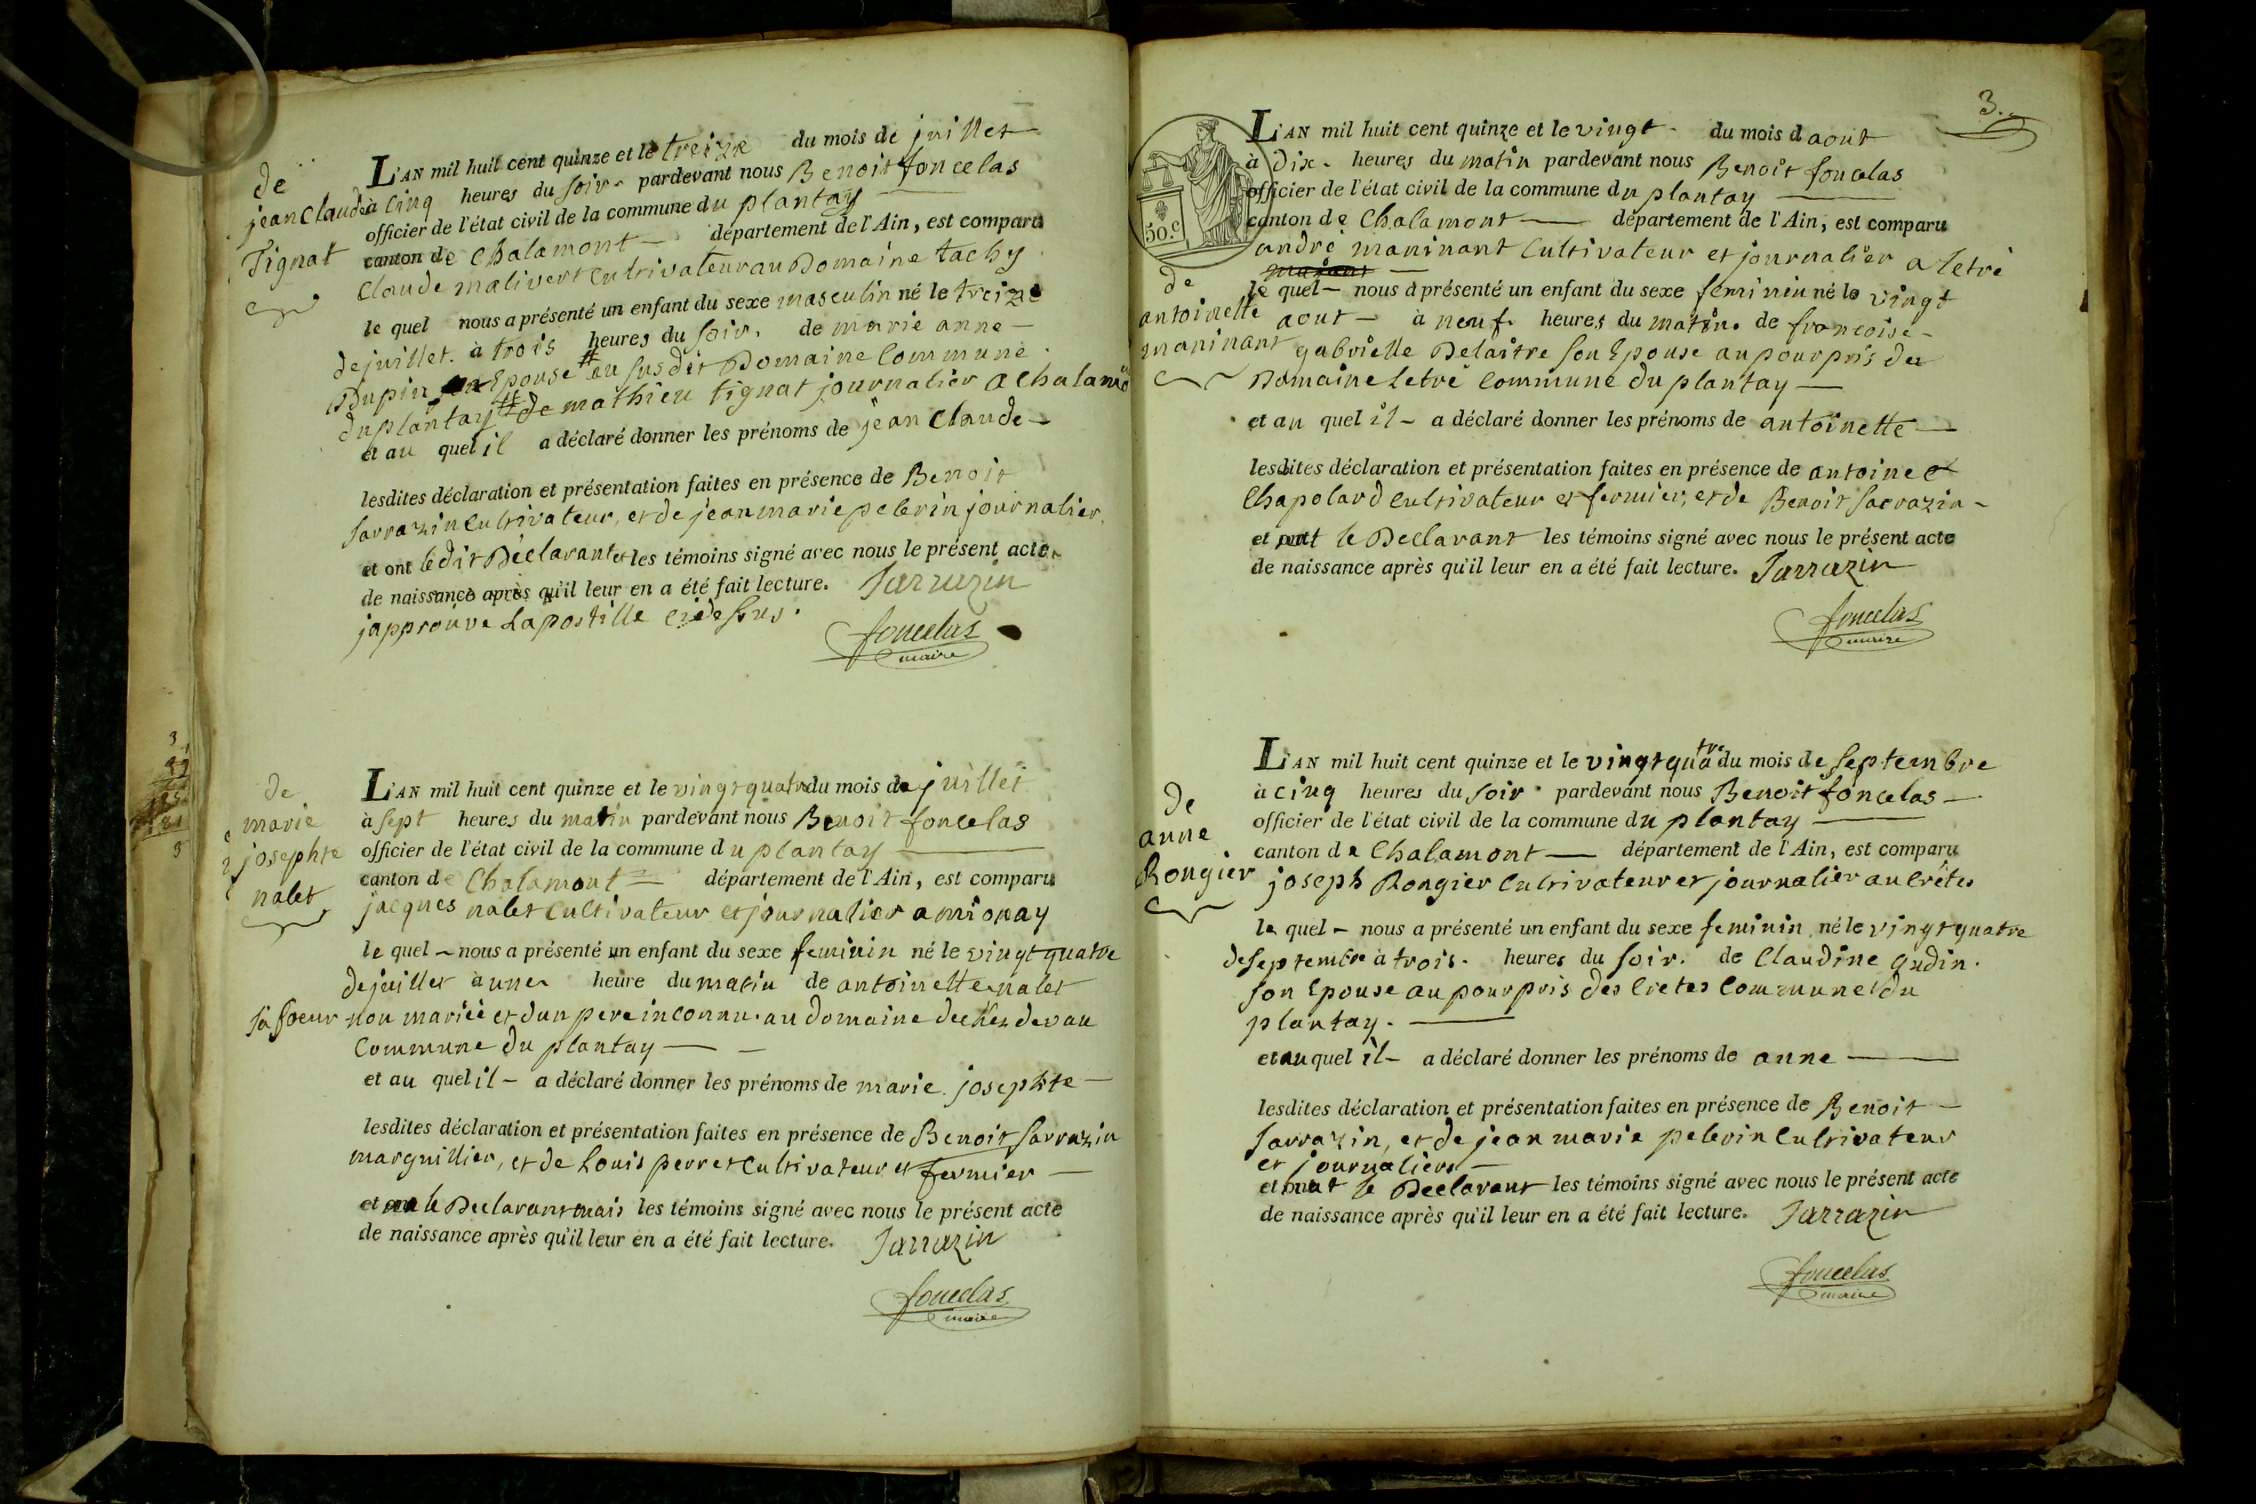 de
jean Claude
Tignat
L'AN mil huit cent quinze et le treize du mois de juillet
à cinq heures du soir pardevant nous Benoit foncelas
officier de l'état civil de la commune du plantay
canton de Chalamont département de l'Ain, est comparu
Claude malivert cultivateur au Domaine tachy
le quel nous a présenté un enfant du sexe masculin né le treize
de juillet. à trois heures du soir, de marie anne
Dupin Epouse # au susdit Domaine Commune
du plantay # de mathieu tignat journalier a Chalamo
et au quel il a déclaré donner les prénoms de jean Claude
lesdites déclaration et présentation faites en présence de Benoit
Sarrazin cultivateur, et de jean marie pelerin journalier.
et ont le dit Déclarant et les témoins signé avec nous le présent acte
de naissance après qu'il leur en a été fait lecture. Sarrazin
japprouve Lapostille cidessus.
foncelas
maire
de
marie
josephte
nalet
L'AN mil huit cent quinze et le vingt quatre du mois de juillet
à sept heures du matin pardevant nous Benoit foncelas
officier de l'état civil de la commune du plantay
canton de Chalamont département de l'Ain, est comparu
jacques nalet cultivateur et journalier a mionay
le quel nous a présenté un enfant du sexe feminin né le vingt quatre
de juillet à une heure du matin de antoinette nalet
sa soeur non mariée et dun pere inconnu. au domaine de chez devau
Commune du plantay
et au quel il a déclaré donner les prénoms de marie josephte
lesdites déclaration et présentation faites en présence de Benoit Sarrazin
marguillier, et de Louis perret cultivateur et fermier
et le Declarant mais les témoins signé avec nous le présent acte
de naissance après qu'il leur en a été fait lecture. Sarrazin
foncelas
maire
3.
50.c
de
antoinette
maninant
L'AN mil huit cent quinze et le vingt du mois d aout
à dix heures du matin pardevant nous Benoit foncelas
officier de l'état civil de la commune du plantay
canton de Chalamont département de l'Ain, est comparu
andré maninant Cultivateur et journalier a letré
le quel nous a présenté un enfant du sexe feminin né le vingt
aout à neuf heures du matin de francoise
gabrielle Delaitre son Epouse au pourpris du
Domaine letré Commune du plantay
et au quel il a déclaré donner les prénoms de antoinette
lesdites déclaration et présentation faites en présence de antoine
Chapolard cultivateur et fermier, et de Benoit Sarrazin
et le Declarant les témoins signé avec nous le présent acte
de naissance après qu'il leur en a été fait lecture. Sarrazin
foncelas
maire
de
anne
Rongier
L'AN mil huit cent quinze et le vingt quatre du mois de Septembre
à cinq heures du soir pardevant nous Benoit foncelas
officier de l'état civil de la commune du plantay
canton de Chalamont département de l'Ain, est comparu
joseph Rongier Cultivateur et journalier au Crétes
le quel nous a présenté un enfant du sexe feminin né le vingt quatre
de septembre à trois heures du soir. de Claudine gudin.
son Epouse au pourpris des Cretes Commune du
plantay.
et au quel il a déclaré donner les prénoms de anne
lesdites déclaration et présentation faites en présence de Benoit
Sarrazin, et de jean marie pelerin Cultivateur
et journaliers
et le Declarant les témoins signé avec nous le présent acte
de naissance après qu'il leur en a été fait lecture. Sarrazin
foncelas
maire